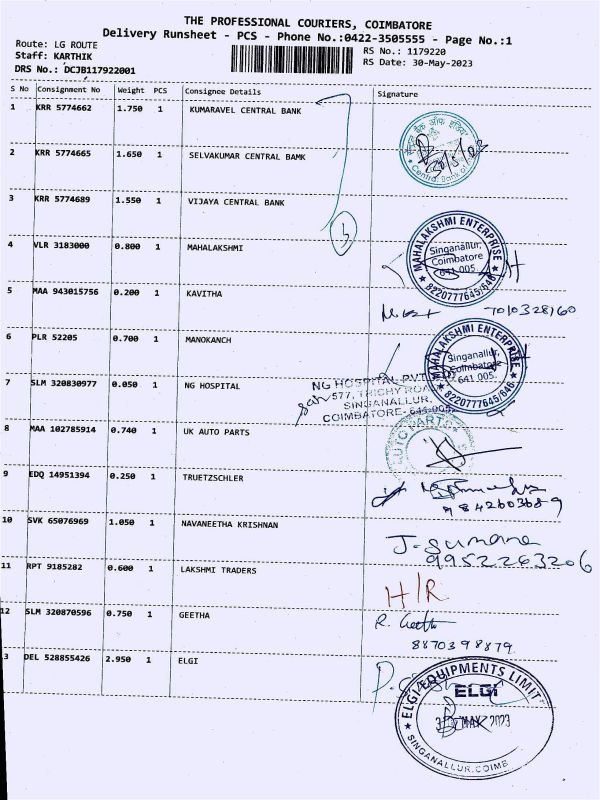 THE PROFESSIONAL COURIERS, COIMBATORE
Delivery Runsheet - PCS - Phone No.:0422-3505555 - Page No.:1
Route: LG ROUTE
Staff: KARTHIK
DRS No.: DCJB117922001
RS No.: 1179220
RS Date: 30-May-2023
S No Consignment No Weight PCS Consignee Details Signature
1 KRR 5774662 1.750 1 KUMARAVEL CENTRAL BANK
2 KRR 5774665 1.650 1 SELVAKUMAR CENTRAL BAMK
3 KRR 5774689 1.550 1 VIJAYA CENTRAL BANK
3
4 VLR 3183000 0.800 1 MAHALAKSHMI
MAHALAKSHMI ENTERPRISE
Singanallur,
Coimbatore
641 005.
8220777645/646
5 MAA 943015756 0.200 1 KAVITHA
7010328160
6 PLR 52205 0.700 1 MANOKANCH
MAHALAKSHMI ENTERPRISE
Singanallur,
Coimbatore
641 005.
8220777645/646
7 SLM 320830977 0.050 1 NG HOSPITAL
NG HOSPITAL PVT
577, TRICHY ROAD
SINGANALLUR,
COIMBATORE- 641 005.
8 MAA 102785914 0.740 1 UK AUTO PARTS
AUTO PARTS
9 EDQ 14951394 0.250 1 TRUETZSCHLER
9842603689
10 SVK 65076969 1.050 1 NAVANEETHA KRISHNAN
J. Sumana
9952263206
11 RPT 9185282 0.600 1 LAKSHMI TRADERS
H/R
12 SLM 320870596 0.750 1 GEETHA
R. Geetha
8870398879
3 DEL 528855426 2.950 1 ELGI
ELGI EQUIPMENTS LIMIT
ELGi
MAY 2023
SINGANALLUR, COIMB